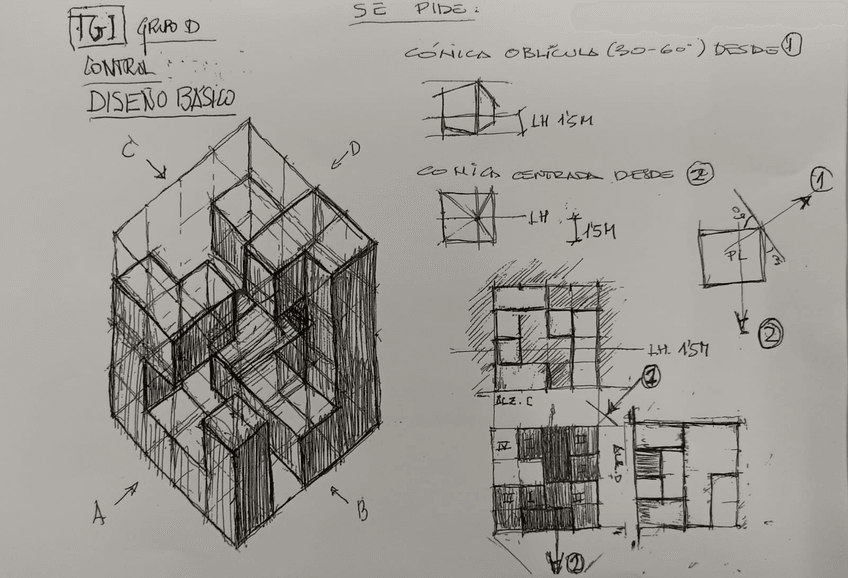 TGI GRUPO D
CONTROL
DISEÑO BÁSICO
SE PIDE:
CÓNICA OBLÍCULA (30-60°) DESDE 1
LH 1'5M
CONICA CENTRADA DESDE 2
LH
1'5M
1
60
PL
2
LH. 1'5M
ALZ. C
1
IV
II
III
I
II
ALZ. D
2
C
D
A
B